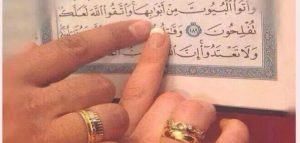 وَأْتُوا۟ ٱلْبُيُوتَ مِنْ أَبْوَٰبِهَا وَٱتَّقُوا۟ ٱللَّهَ لَعَلَّكُمْ
تُفْلِحُونَ ١٨٩
وَلَا تَعْتَدُوٓا۟ إِنَّ